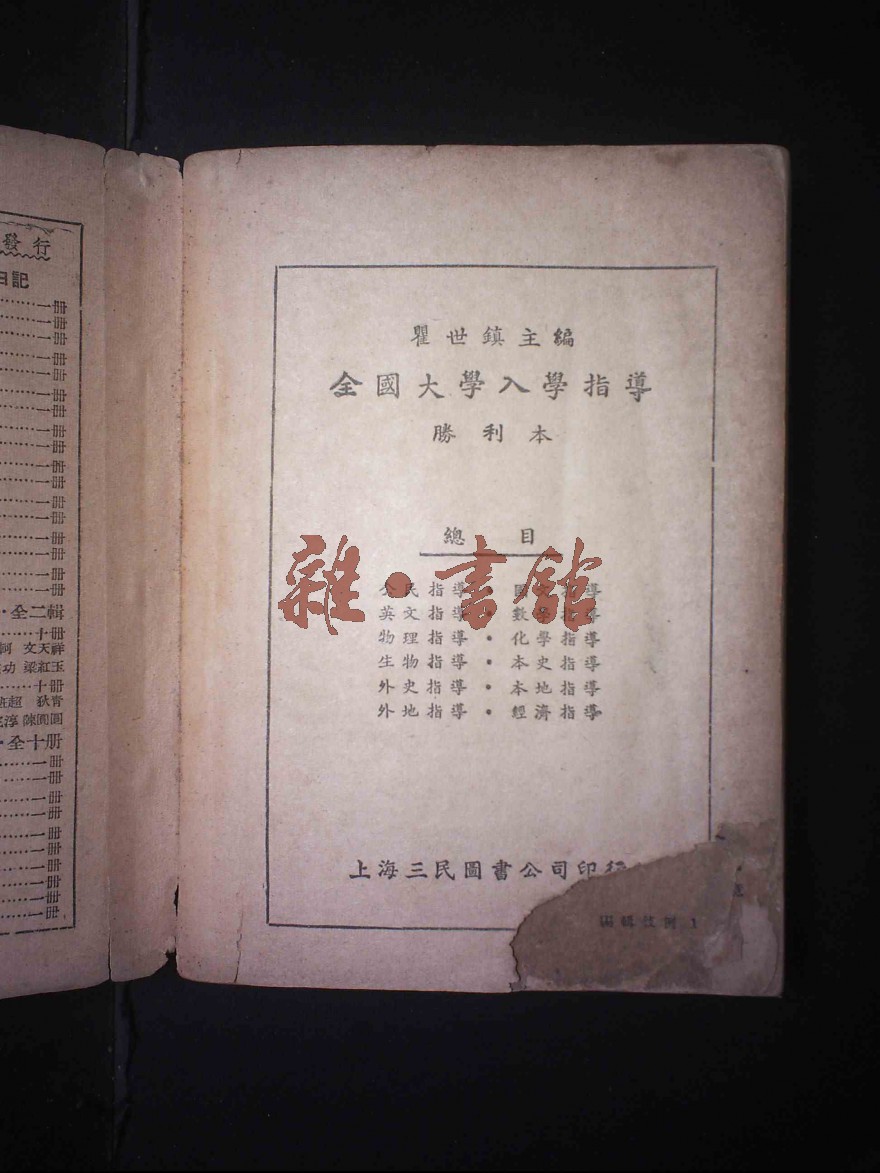 發行
日記
一冊
一冊
一冊
一冊
一冊
一冊
一冊
一冊
一冊
一冊
一冊
一冊
一冊
一冊
一冊
一冊
全二輯
十冊
文天祥
梁紅玉
十冊
狄青
陳圓圓
全十册
一冊
一冊
一冊
一冊
一冊
一冊
一冊
一冊
一冊
瞿世鎮主編
全國大學入學指導
勝利本
總目
公民指導・國文指導
英文指導・數學指導
物理指導・化學指導
生物指導・本史指導
外史指導・本地指導
外地指導・經濟指導
雜·書館
上海三民圖書公司印行
編輯 例 1